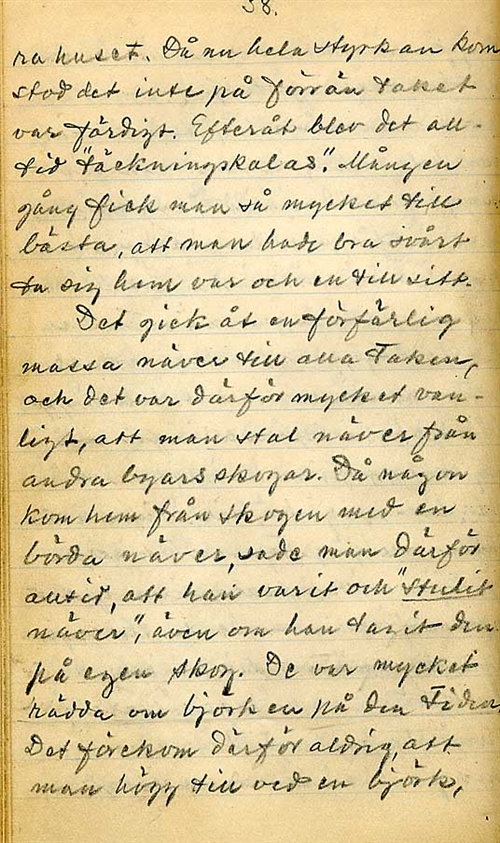 58.
ra huset. Då nu hela styrkan kom
stod det inte på förrän taket
var färdigt. Efteråt blev det all-
tid "täckningskalas". Mången
gång fick man så mycket till
bästa, att man hade bra svårt
ta sig hem var och en till sitt.
Det gick åt en förfärlig
massa näver till alla taken,
och det var därför mycket van-
ligt, att man stal näver från
andra byars skogar. Då någon
kom hem från skogen med en
börda näver, sade man därför
alltid, att han varit och "stulit
näver", även om han tagit den
på egen skog. De var mycket
rädda om björken på den tiden.
Det förekom därför aldrig, att
man högg till ved en björk,